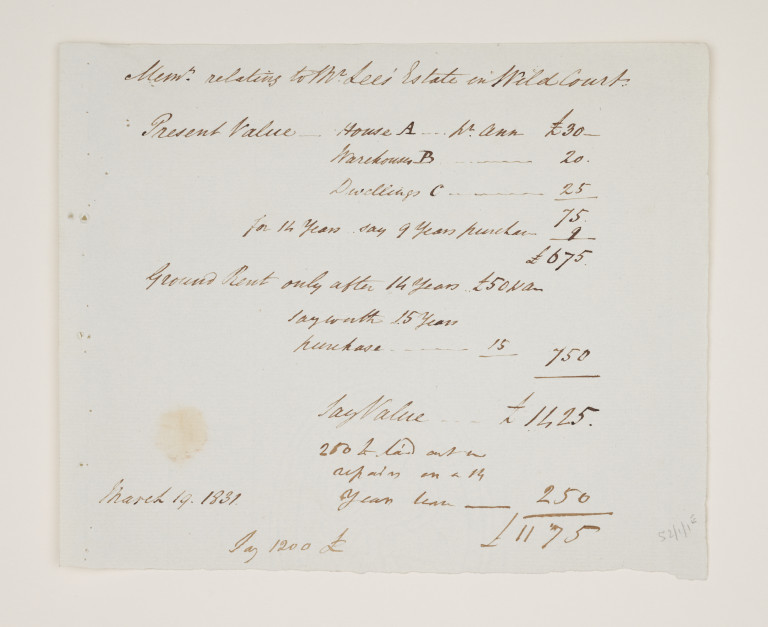 Memn. relating to Mr. Lee's Estate in Wild Court.
Present Value — House A — Pr. Ann £30 —
Warehouses B — 20.
Dwellings C — 25
75.
for 14 Years say 9 Years purchase 9
£675.
Ground Rent only after 14 Years £50
say worth 15 Years
purchase — 15 750
Say Value — £ 1425.
250 £ laid out in
repairs on a 14
March 19. 1831. Years lease — 250
£1175
Say 1200 £
52/1/15